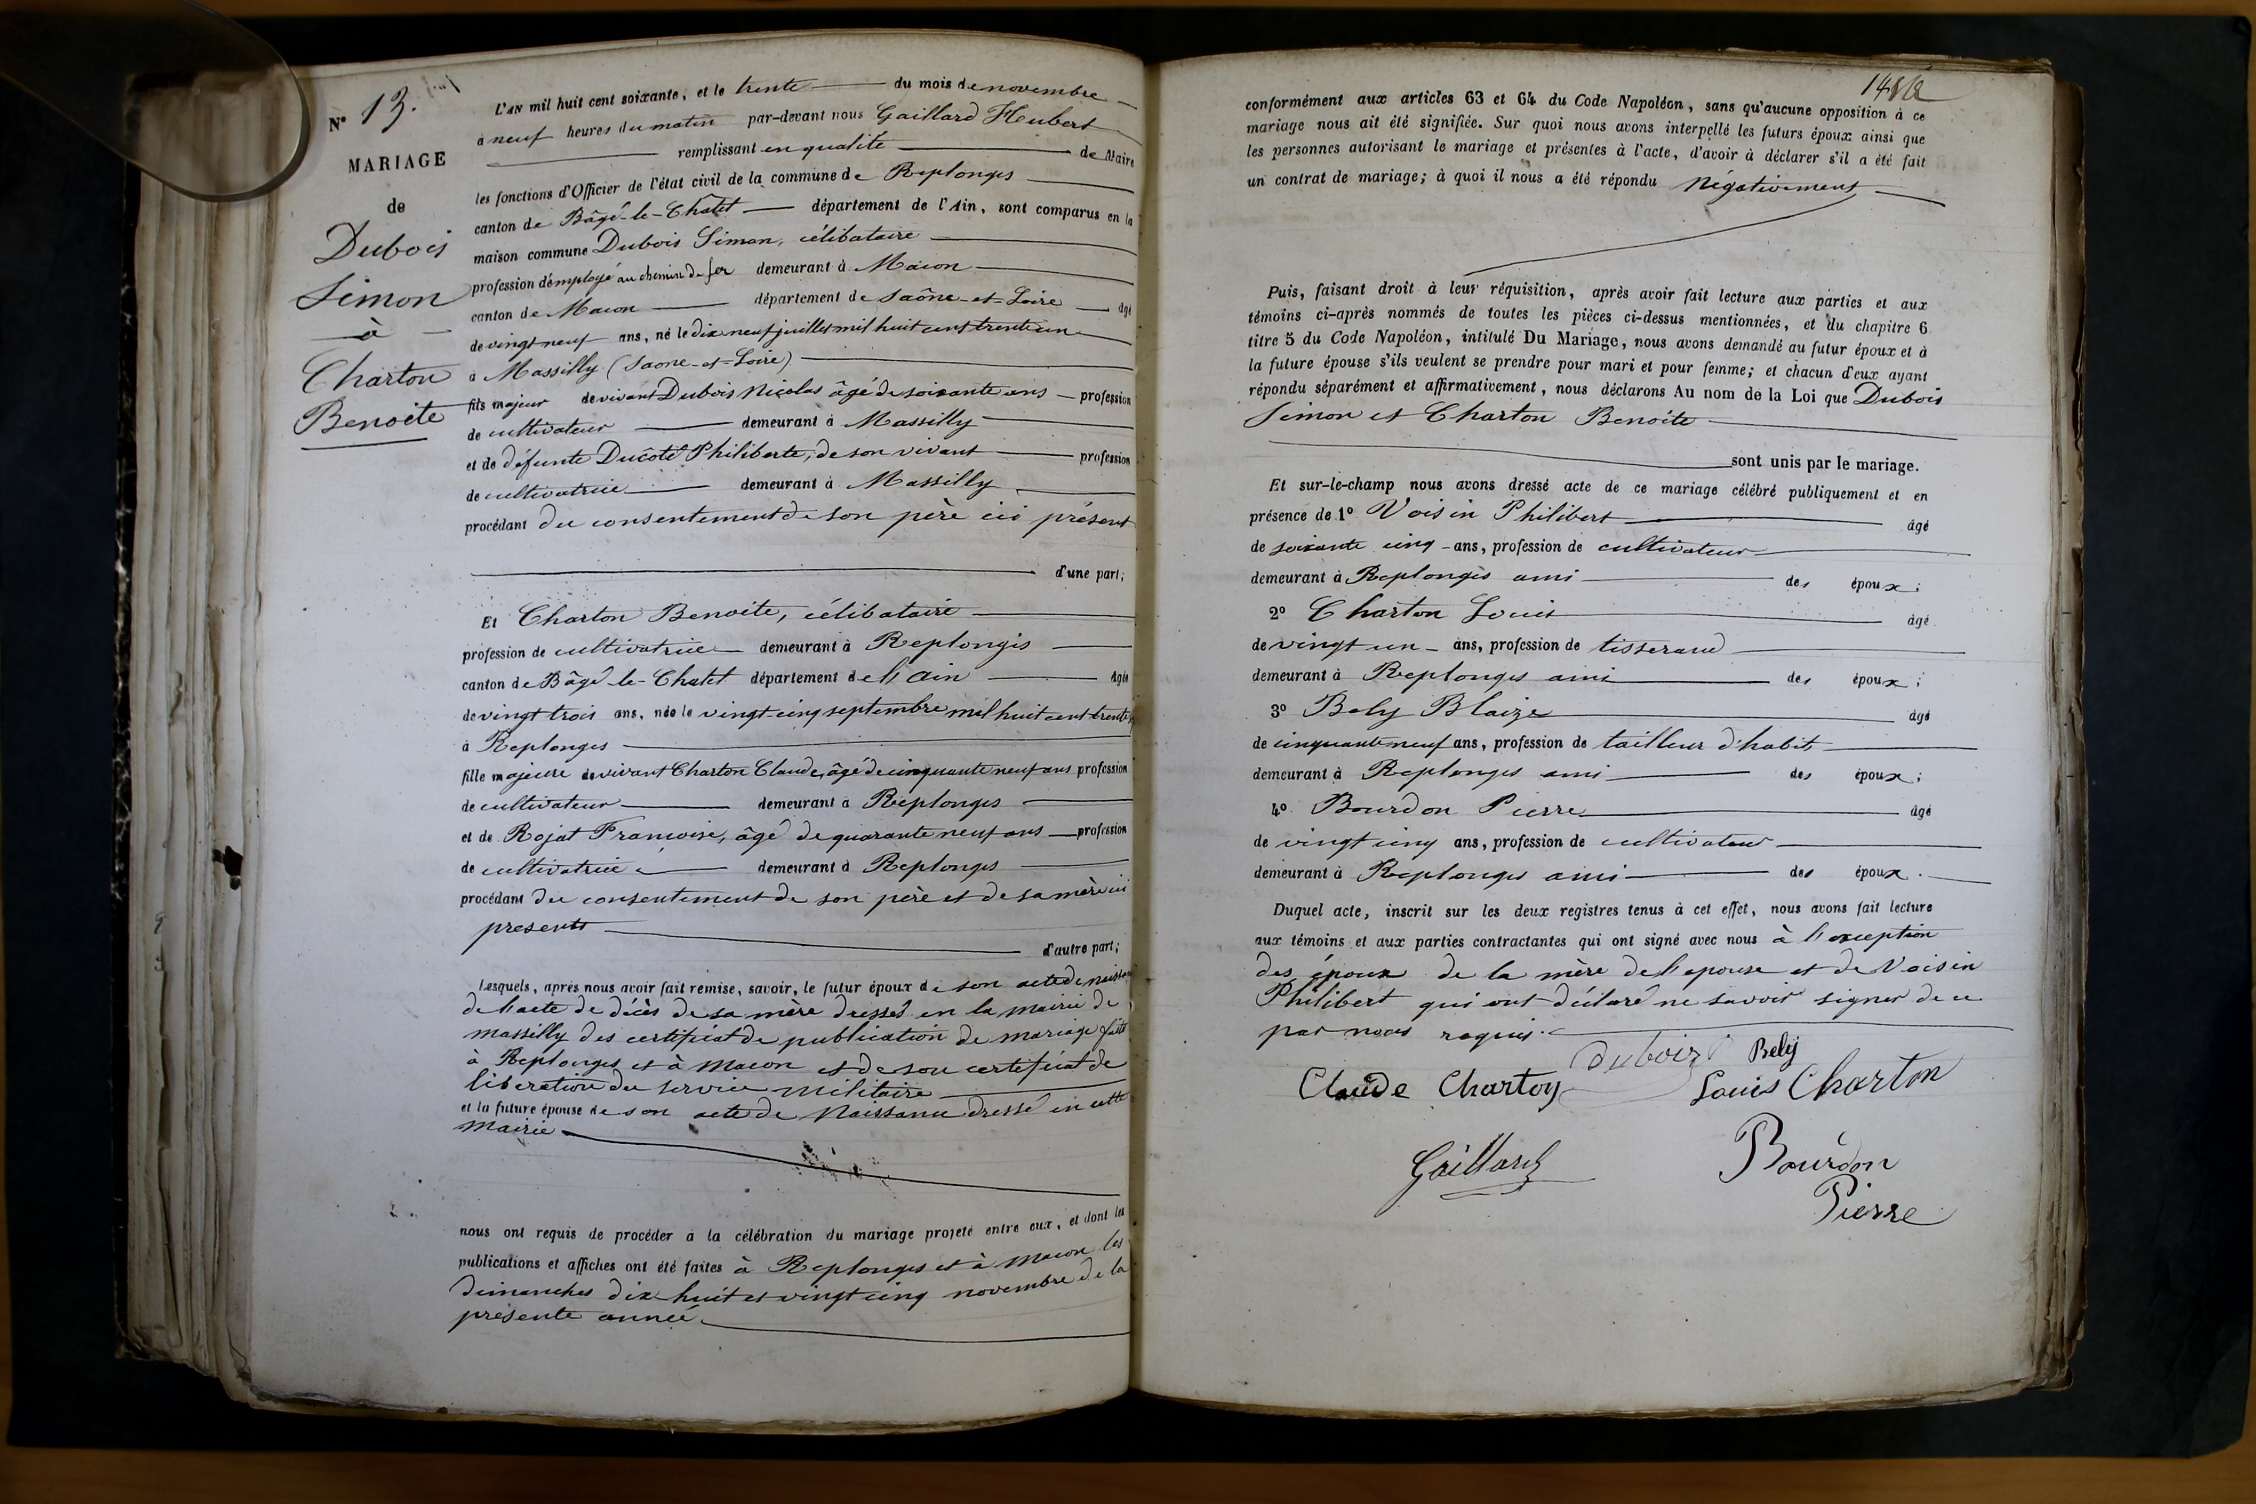 N° 13.
MARIAGE
de
Dubois
Simon
à
Charton
Benoite
L'AN mil huit cent soixante, et le trente du mois de novembre
à neuf heures du matin par-devant nous Gaillard Hubert
remplissant en qualité de Maire
les fonctions d'Officier de l'état civil de la commune de Replonges
canton de Bâgé-le-Châtel département de l'Ain, sont comparus en la
maison commune Dubois Simon, célibataire
profession d'employé au chemin de fer demeurant à Macon
canton de Macon département de Saône-et-Loire âgé
de vingt neuf ans, né le dix neuf juillet mil huit cent trente un
à Massilly (Saone-et-Loire)
fils majeur de vivant Dubois Nicolas âgé de soixante ans profession
de cultivateur demeurant à Massilly
et de défunte Ducôté Philiberte, de son vivant profession
de cultivatrice demeurant à Massilly
procédant du consentement de son père ici présent
d'une part;
Et Charton Benoite, célibataire
profession de cultivatrice demeurant à Replonges
canton de Bâgé-le-Chatel département de l'Ain âgée
de vingt trois ans, née le vingt-cinq septembre mil huit cent trente
à Replonges
fille majeure de vivant Charton Claude, âgé de cinquante neuf ans profession
de cultivateur demeurant à Replonges
et de Rojat Francoise, âgé de quarante neuf ans profession
de cultivatrice demeurant à Replonges
procédant du consentement de son père et de sa mère ici
presents
d'autre part;
Lesquels, après nous avoir fait remise, savoir, le futur époux de son acte de
de l'acte de décès de sa mère dressés en la mairie de
massilly des certificat de publication de mariage faite
à Replonges et à Macon et de son certificat de
libération du service militaire
et la future épouse de son acte de Naissance dressé en cette
mairie
nous ont requis de procéder à la célébration du mariage projeté entre eux, et dont les
publications et affiches ont été faites à Replonges et à Macon les
dimanches dix huit et vingt cinq novembre de la
présente année
conformément aux articles 63 et 64 du Code Napoléon, sans qu'aucune opposition à ce
mariage nous ait été signifiée. Sur quoi nous avons interpellé les futurs époux ainsi que
les personnes autorisant le mariage et présentes à l'acte, d'avoir à déclarer s'il a été fait
un contrat de mariage; à quoi il nous a été répondu Négativement
Puis, faisant droit à leur réquisition, après avoir fait lecture aux parties et aux
témoins ci-après nommés de toutes les pièces ci-dessus mentionnées, et du chapitre 6
titre 5 du Code Napoléon, intitulé Du Mariage, nous avons demandé au futur époux et à
la future épouse s'ils veulent se prendre pour mari et pour femme; et chacun d'eux ayant
répondu séparément et affirmativement, nous déclarons Au nom de la Loi que Dubois
Simon et Charton Benoite
sont unis par le mariage.
Et sur-le-champ nous avons dressé acte de ce mariage célébré publiquement et en
présence de 1° Voisin Philibert âgé
de soixante cinq ans, profession de cultivateur
demeurant à Replonges ami des époux;
2° Charton Louis âgé
de vingt un ans, profession de tisserand
demeurant à Replonges ami des époux;
3° Bely Blaize âgé
de cinquante neuf ans, profession de tailleur d'habit
demeurant à Replonges ami des époux;
4° Bourdon Pierre âgé
de vingt cinq ans, profession de cultivateur
demeurant à Replonges ami des époux.
Duquel acte, inscrit sur les deux registres tenus à cet effet, nous avons fait lecture
aux témoins et aux parties contractantes qui ont signé avec nous à l'exception
des époux de la mère de l'epouse et de Voisin
Philibert qui ont déclaré ne savoir signer de ce
par nous requis.
duboiz Bely
Claude Charton Louis Charton
Gaillard Bourdon
Pierre